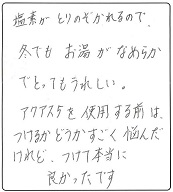 塩素が とりのぞかれるので、
冬でも お湯が なめらか
でとってもうれしい。
アクアスケを使用する前は、
つけるかどうかすごく悩んだ
けれど、つけて本当に
良かったです